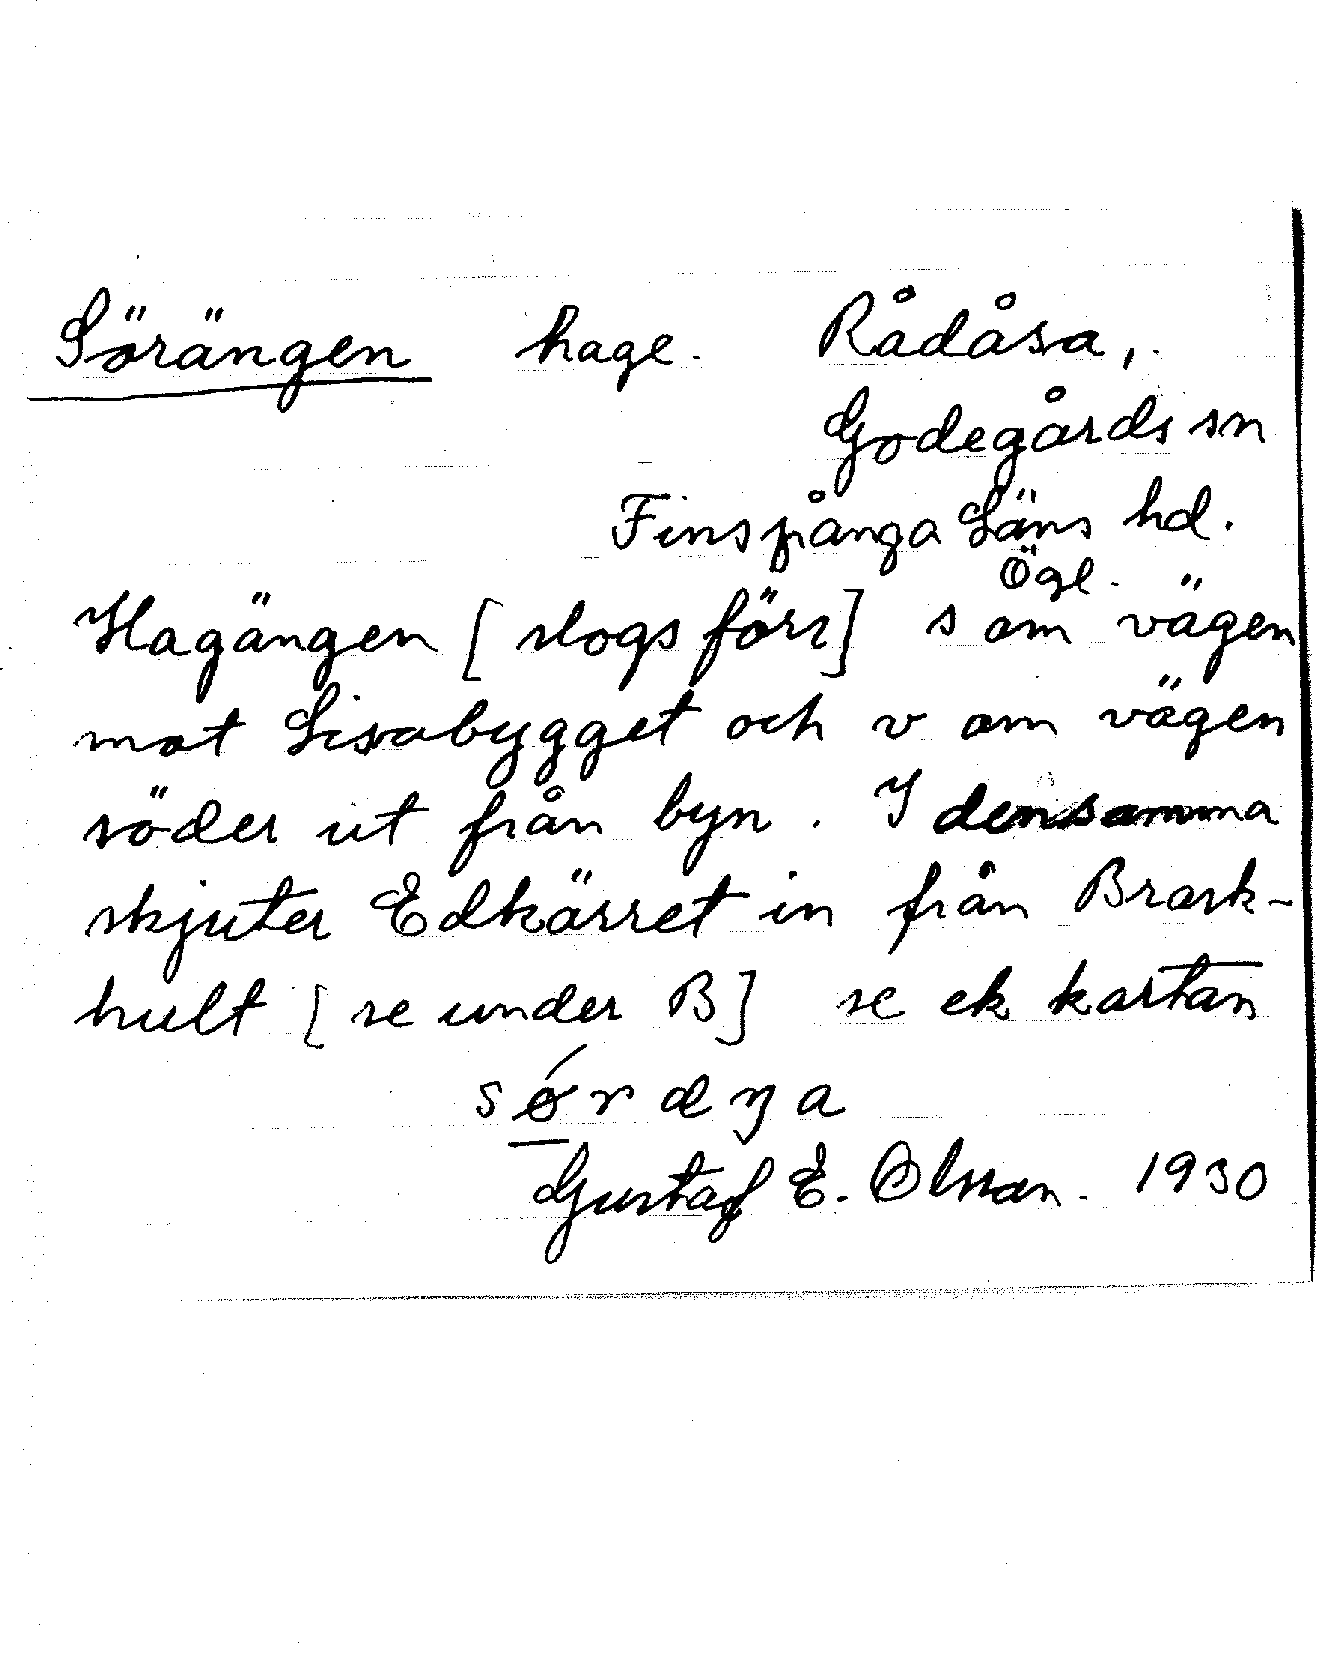 Sörängen hage. Rådåsa,.
Godegårds sn
Finspånga Läns hd.
Ögl.
Hagängen [slogs förr] s om vägen
mot Lisabygget och v om vägen
söder ut från byn. I densamma
skjuter Edkärret in från Brask-
hult [se under B] se ek kartan
Gustaf E. Olsson. 1930